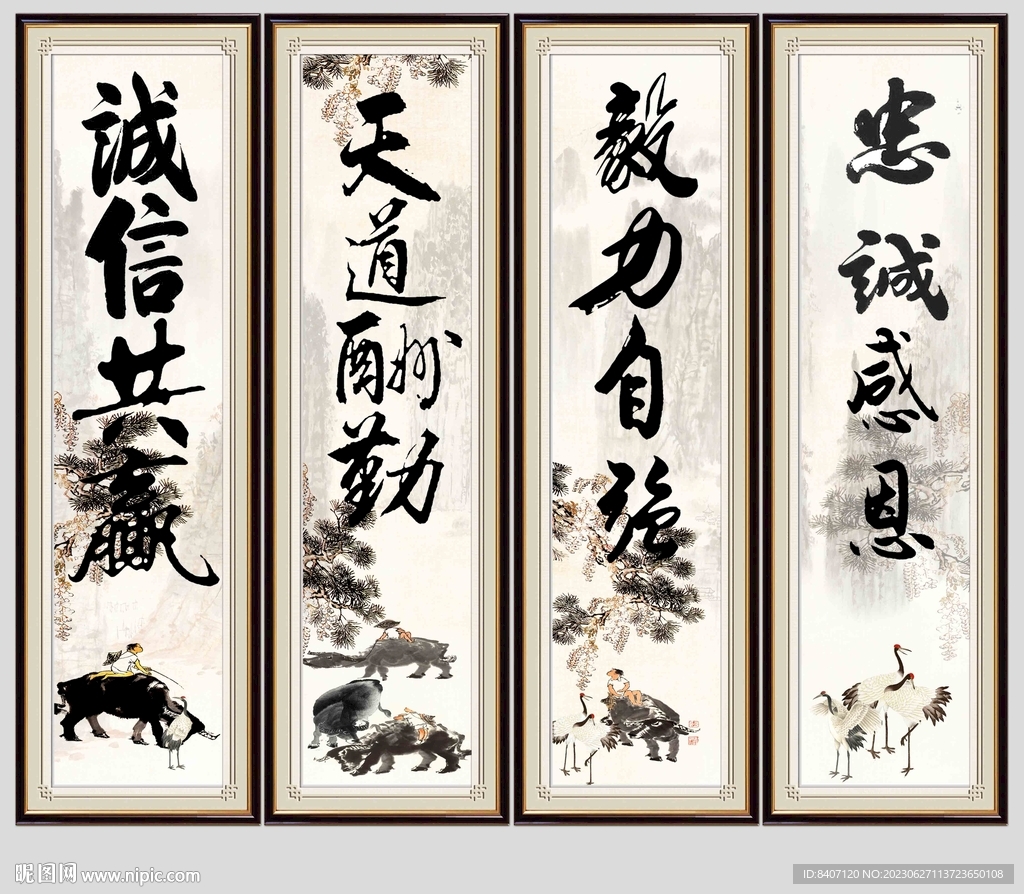 誠信共贏
天道酬勤
毅力自強
忠誠感恩
昵图网 www.nipic.com
ID:8407120 NO:20230627113723650108